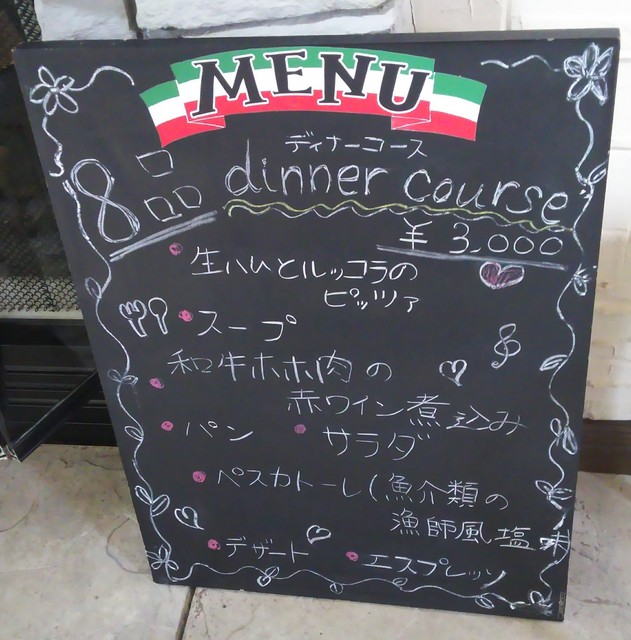 MENU
ディナーコース
8品 dinner course
¥3,000
生ハムとルッコラの
ピッツァ
スープ
和牛ホホ肉の
赤ワイン煮込み
パン サラダ
ペスカトーレ(魚介類の
漁師風塩味
デザート エスプレッソ